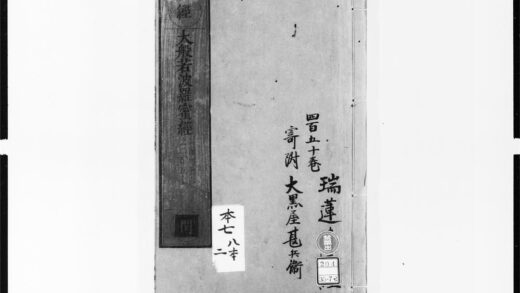 經
大般若波羅蜜經
問
四百五十卷
寄附
大黒屋甚兵衛
瑞蓮
禁帶出
本七
八本
二